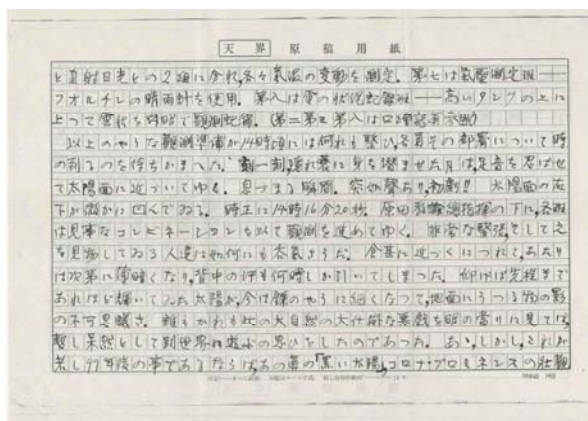 天界 原稿用紙
と直射日光との2項に分れ,各々氣温の変動を測定。第七は氣壓測定班――
フオルチンの晴雨計を使用。第八は雲の狀況記録班――高いタンクの上に
上つて雲狀を時時で観測記録。(第二第三第八は口頭
以上のやうな観測準備が14時頃には何れも整ひ,各員その部署について時
の到るのを待ちかまへた。刻一刻,隠れ蓑に身を潜ませた月は,足音を忍ばせ
て太陽面に近づいてゆく。息づまる瞬間。突如聲あり,初虧!! 太陽面の左
下が微かに凹んでゐる。時正に14時16分20秒。原田 総指揮の下に,各班
は見事なコンビネーシヨンを以て観測を進めてゆく。非常な緊張,そして之
を見物してゐる人達は如何にも呑氣さうだ。食甚に近づくにつれて,あたり
は次第に薄暗くなり,背中の汗も何時しか引いてしまつた。仰げば先程まで
あれほど輝いてゐた太陽が,今は鎌のやうに細くなつて,地面にうつる物の影
の不可思議さ。誰もかれも此の大自然の大仕掛な悪戯を眼の當りに見ては,
暫し呆然として別世界に遊ぶの思ひをしたのであつた。あゝ,しかし,これが
若し97年後の事であるならば,あの眞の「黒い太陽」,コロナ・プロミネンスの壯観